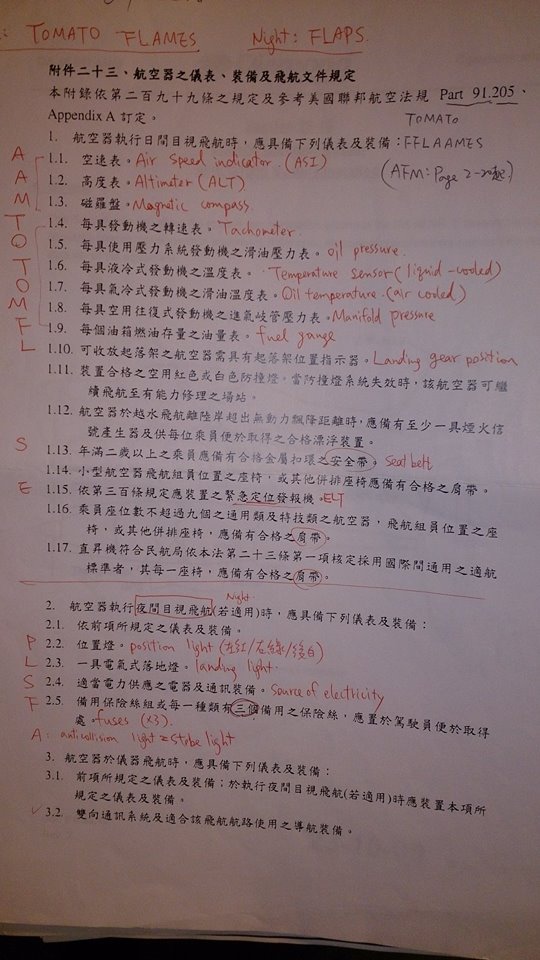 : TOMATO FLAMES Night: FLAPS
附件二十三、航空器之儀表、裝備及飛航文件規定
本附錄依第二百九十九條之規定及參考美國聯邦航空法規 Part 91.205、
Appendix A 訂定。
TOMATO
FFLAAMES
(AFM: Page 2-20起)
1. 航空器執行日間目視飛航時，應具備下列儀表及裝備：
A 1.1. 空速表。Air Speed indicator. (ASI)
A 1.2. 高度表。Altimeter (ALT)
M 1.3. 磁羅盤。Magnetic compass.
T 1.4. 每具發動機之轉速表。Tachometer.
O 1.5. 每具使用壓力系統發動機之滑油壓力表。oil pressure.
T 1.6. 每具液冷式發動機之溫度表。Temperature sensor (liquid-cooled)
O 1.7. 每具氣冷式發動機之滑油溫度表。Oil temperature. (air cooled)
M 1.8. 每具空用往復式發動機之進氣歧管壓力表。Manifold pressure
F 1.9. 每個油箱燃油存量之油量表。fuel gauge
L 1.10. 可收放起落架之航空器需具有起落架位置指示器。Landing gear position
1.11. 裝置合格之空用紅色或白色防撞燈，當防撞燈系統失效時，該航空器可繼
續飛航至有能力修理之場站。
1.12. 航空器於越水飛航離陸岸超出無動力飄降距離時，應備有至少一具煙火信
號產生器及供每位乘員便於取得之合格漂浮裝置。
S 1.13. 年滿二歲以上之乘員應備有合格金屬扣環之安全帶。Seat belt
1.14. 小型航空器飛航組員位置之座椅，或其他併排座椅應備有合格之肩帶。
E 1.15. 依第三百條規定應裝置之緊急定位發報機。ELT
1.16. 乘員座位數不超過九個之通用類及特技類之航空器，飛航組員位置之座
椅，或其他併排座椅，應備有合格之肩帶。
1.17. 直昇機符合民航局依本法第二十三條第一項核定採用國際間通用之適航
標準者，其每一座椅，應備有合格之肩帶。
Night
2. 航空器執行夜間目視飛航(若適用)時，應具備下列儀表及裝備：
2.1. 依前項所規定之儀表及裝備。
P 2.2. 位置燈。position light (左紅/右綠/後白)
L 2.3. 一具電氣式落地燈。landing light.
S 2.4. 適當電力供應之電器及通訊裝備。source of electricity
F 2.5. 備用保險絲組或每一種類有三個備用之保險絲，應置於駕駛員便於取得
處。fuses (x3).
A: anticollision light = strobe light
3. 航空器於儀器飛航時，應具備下列儀表及裝備：
3.1. 前項所規定之儀表及裝備；於執行夜間目視飛航(若適用)時應裝置本項所
規定之儀表及裝備。
3.2. 雙向通訊系統及適合該飛航航路使用之導航裝備。